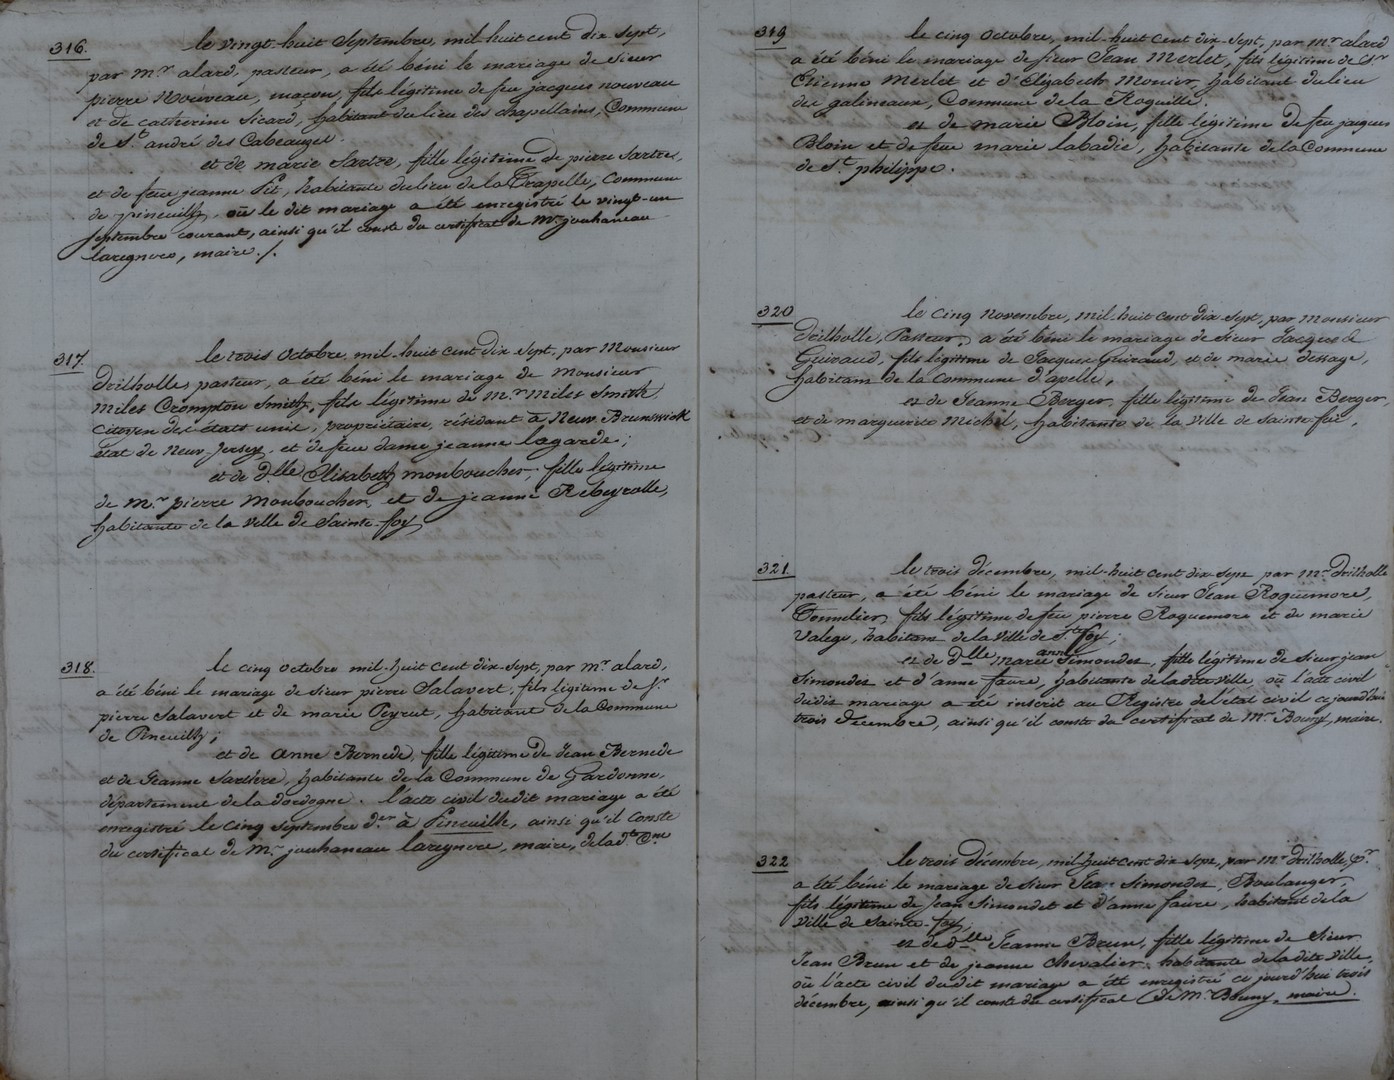 316.
le vingt-huit Septembre, mil-huit cent dix sept,
par mr. alard, pasteur, a été béni le mariage de sieur
pierre Nouveau, maçon, fils légitime de feu jacques nouveau
et de catherine Sicard, habitant du lieu des chapellains, Commune
de St. andré des Cabeauzes.
et de marie Sartre, fille légitime de pierre Sartres,
et de feue jeanne Fit, habitante du lieu de la Trapelle, Commune
de pineuilly, où le dit mariage a été enregistré le vingt-un
septembre courant, ainsi qu'il conste du certificat de Mr. jouhaneau
laregnere, maire./.
317.
le trois Octobre, mil-huit cent dix sept, par Monsieur
Drilholles, pasteur, a été béni le mariage de Monsieur
Miles Crompton Smith, fils légitime de Mr. Miles Smith
Citoyen des états unis, propriétaire, résidant à New-Brunswick
état de New-Jersey, et de feue dame jeanne lagarde;
et de dlle Elisabeth Monboucher, fille légitime
de Mr. pierre Monboucher, et de jeanne Rebeyrolle,
habitante de la Ville de Sainte-foy
318.
le cinq octobre mil-huit cent dix-sept, par mr. alard,
a été béni le mariage de sieur pierre Salavert, fils légitime de sr.
pierre Salavert et de marie Peyrut, habitant de la Commune
de Pineuilly;
et de Anne Bernede, fille légitime de Jean Bernede
et de Jeanne Sarthre, habitante de la Commune de Gardonne,
département de la dordogne. l'acte civil du dit mariage a été
enregistré le cinq septembre der. à Pineuille, ainsi qu'il conste
du certificat de Mr. jouhaneau laregnere, maire, de lad.te Cne
319
le cinq Octobre, mil-huit cent dix-sept, par mr alard
a été béni le mariage de sieur Jean Merlet, fils légitime de Sr
Etienne Merlet et d'Elizabeth Monier, habitant du lieu
des galineaux, Commune de la Roquille.
et de marie Bloin, fille légitime de feu jacques
Bloin et de feue marie labadie, habitante de la Commune
de St. philippe.
320
le cinq Novembre, mil-huit cent dix sept, par Monsieur
Drilholle, Pasteur, a été béni le mariage de sieur Jacques
Guiraud, fils légitime de Jacques Guiraud, et de marie dessage,
habitans de la Commune d'apelle,
et de Jeanne Berger, fille légitime de Jean Berger,
et de marguerite Michel, habitante de la Ville de Sainte-foi,
321.
le trois décembre, mil-huit cent dix-sept par mr. Drilholle
pasteur, a été béni le mariage de sieur Jean Roquemore,
Tonnelier, fils légitime de feu pierre Roquemore et de marie
Valege, habitans de la Ville de Ste foy;
anne
et de dlle marie Simondet, fille légitime de sieur jean
Simondet et d'anne faure, habitante de la dite Ville, où l'acte civil
du dit mariage a été inscrit au Registre de l'état civil ce jourd'hui
trois décembre, ainsi qu'il conste du certificat de Mr Bouny, maire.
322
le trois décembre, mil-huit cent dix sept, par mr Drilholle, pr.
a été béni le mariage de sieur Jean Simondet, Boulanger,
fils légitime de Jean Simondet et d'anne faure, habitant de la
Ville de Sainte-foy,
et de dlle Jeanne Brun, fille légitime de Sieur
Jean Brun et de jeanne Chevalier, habitante de la dite Ville,
où l'acte civil du dit mariage a été enregistré ce jourd'hui trois
décembre, ainsi qu'il conste du certificat de Mr. Bouny, maire.